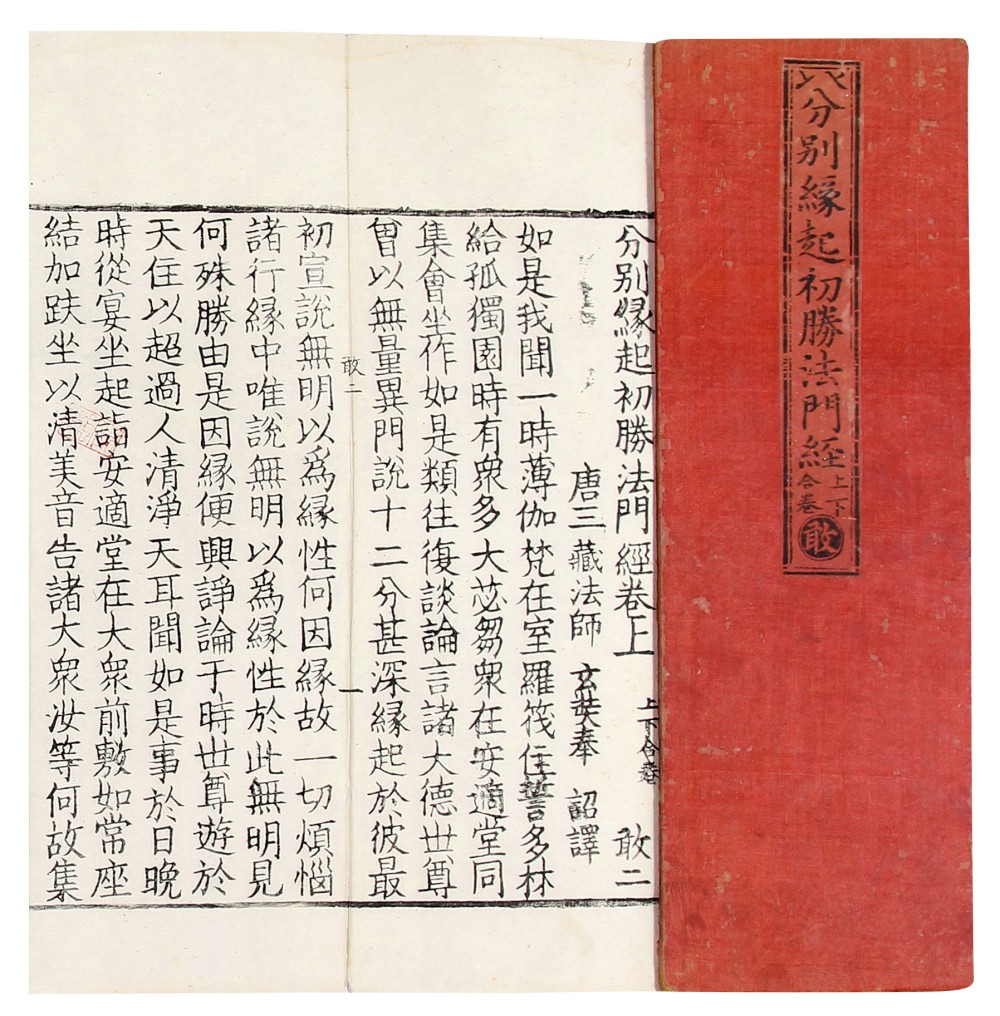 分別緣起初勝法門経
上下
合卷
敢
分別縁起初勝法門經卷上 上下合卷 敢二
唐三藏法師 玄奘奉 詔譯
如是我聞一時薄伽梵在室羅筏住誓多林
給孤獨園時有衆多大苾芻衆在安適堂同
集會坐作如是類往復談論言諸大德世尊
曾以無量異門說十二分甚深縁起於彼最
敢二 一
初宣說無明以爲縁性何因縁故一切煩惱
諸行縁中唯說無明以爲縁性於此無明見
何殊勝由是因縁便興諍論于時世尊遊於
天住以超過人清淨天耳聞如是事於日晚
時從宴坐起詣安適堂在大衆前敷如常座
結加趺坐以清美音告諸大衆汝等何故集